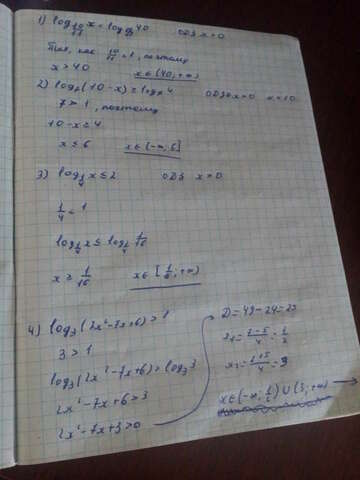 1) log₁₀/₁₁ x < log₁₀/₁₁ 40 ОДЗ x>0
Так, как 10/11 < 1, поэтому
x > 40 x∈(40; +∞)
2) log₇(10-x) ≥ log₇ 4 ОДЗ 10-x>0 x<10
7 > 1, поэтому
10-x ≥ 4
x ≤ 6 x∈(-∞; 6]
3) log₁/₄ x ≤ 2 ОДЗ x>0
1/4 < 1
log₁/₄ x ≤ log₁/₄ 1/16
x ≥ 1/16 x∈[1/16; +∞)
4) log₃(2x²-7x+6) > 1
3 > 1
log₃(2x²-7x+6) > log₃ 3
2x²-7x+6 > 3
2x²-7x+3 > 0
D = 49-24 = 25
x₁ = (7-5)/4 = 1/2
x₂ = (7+5)/4 = 3
x∈(-∞; 1/2) ∪ (3; +∞)